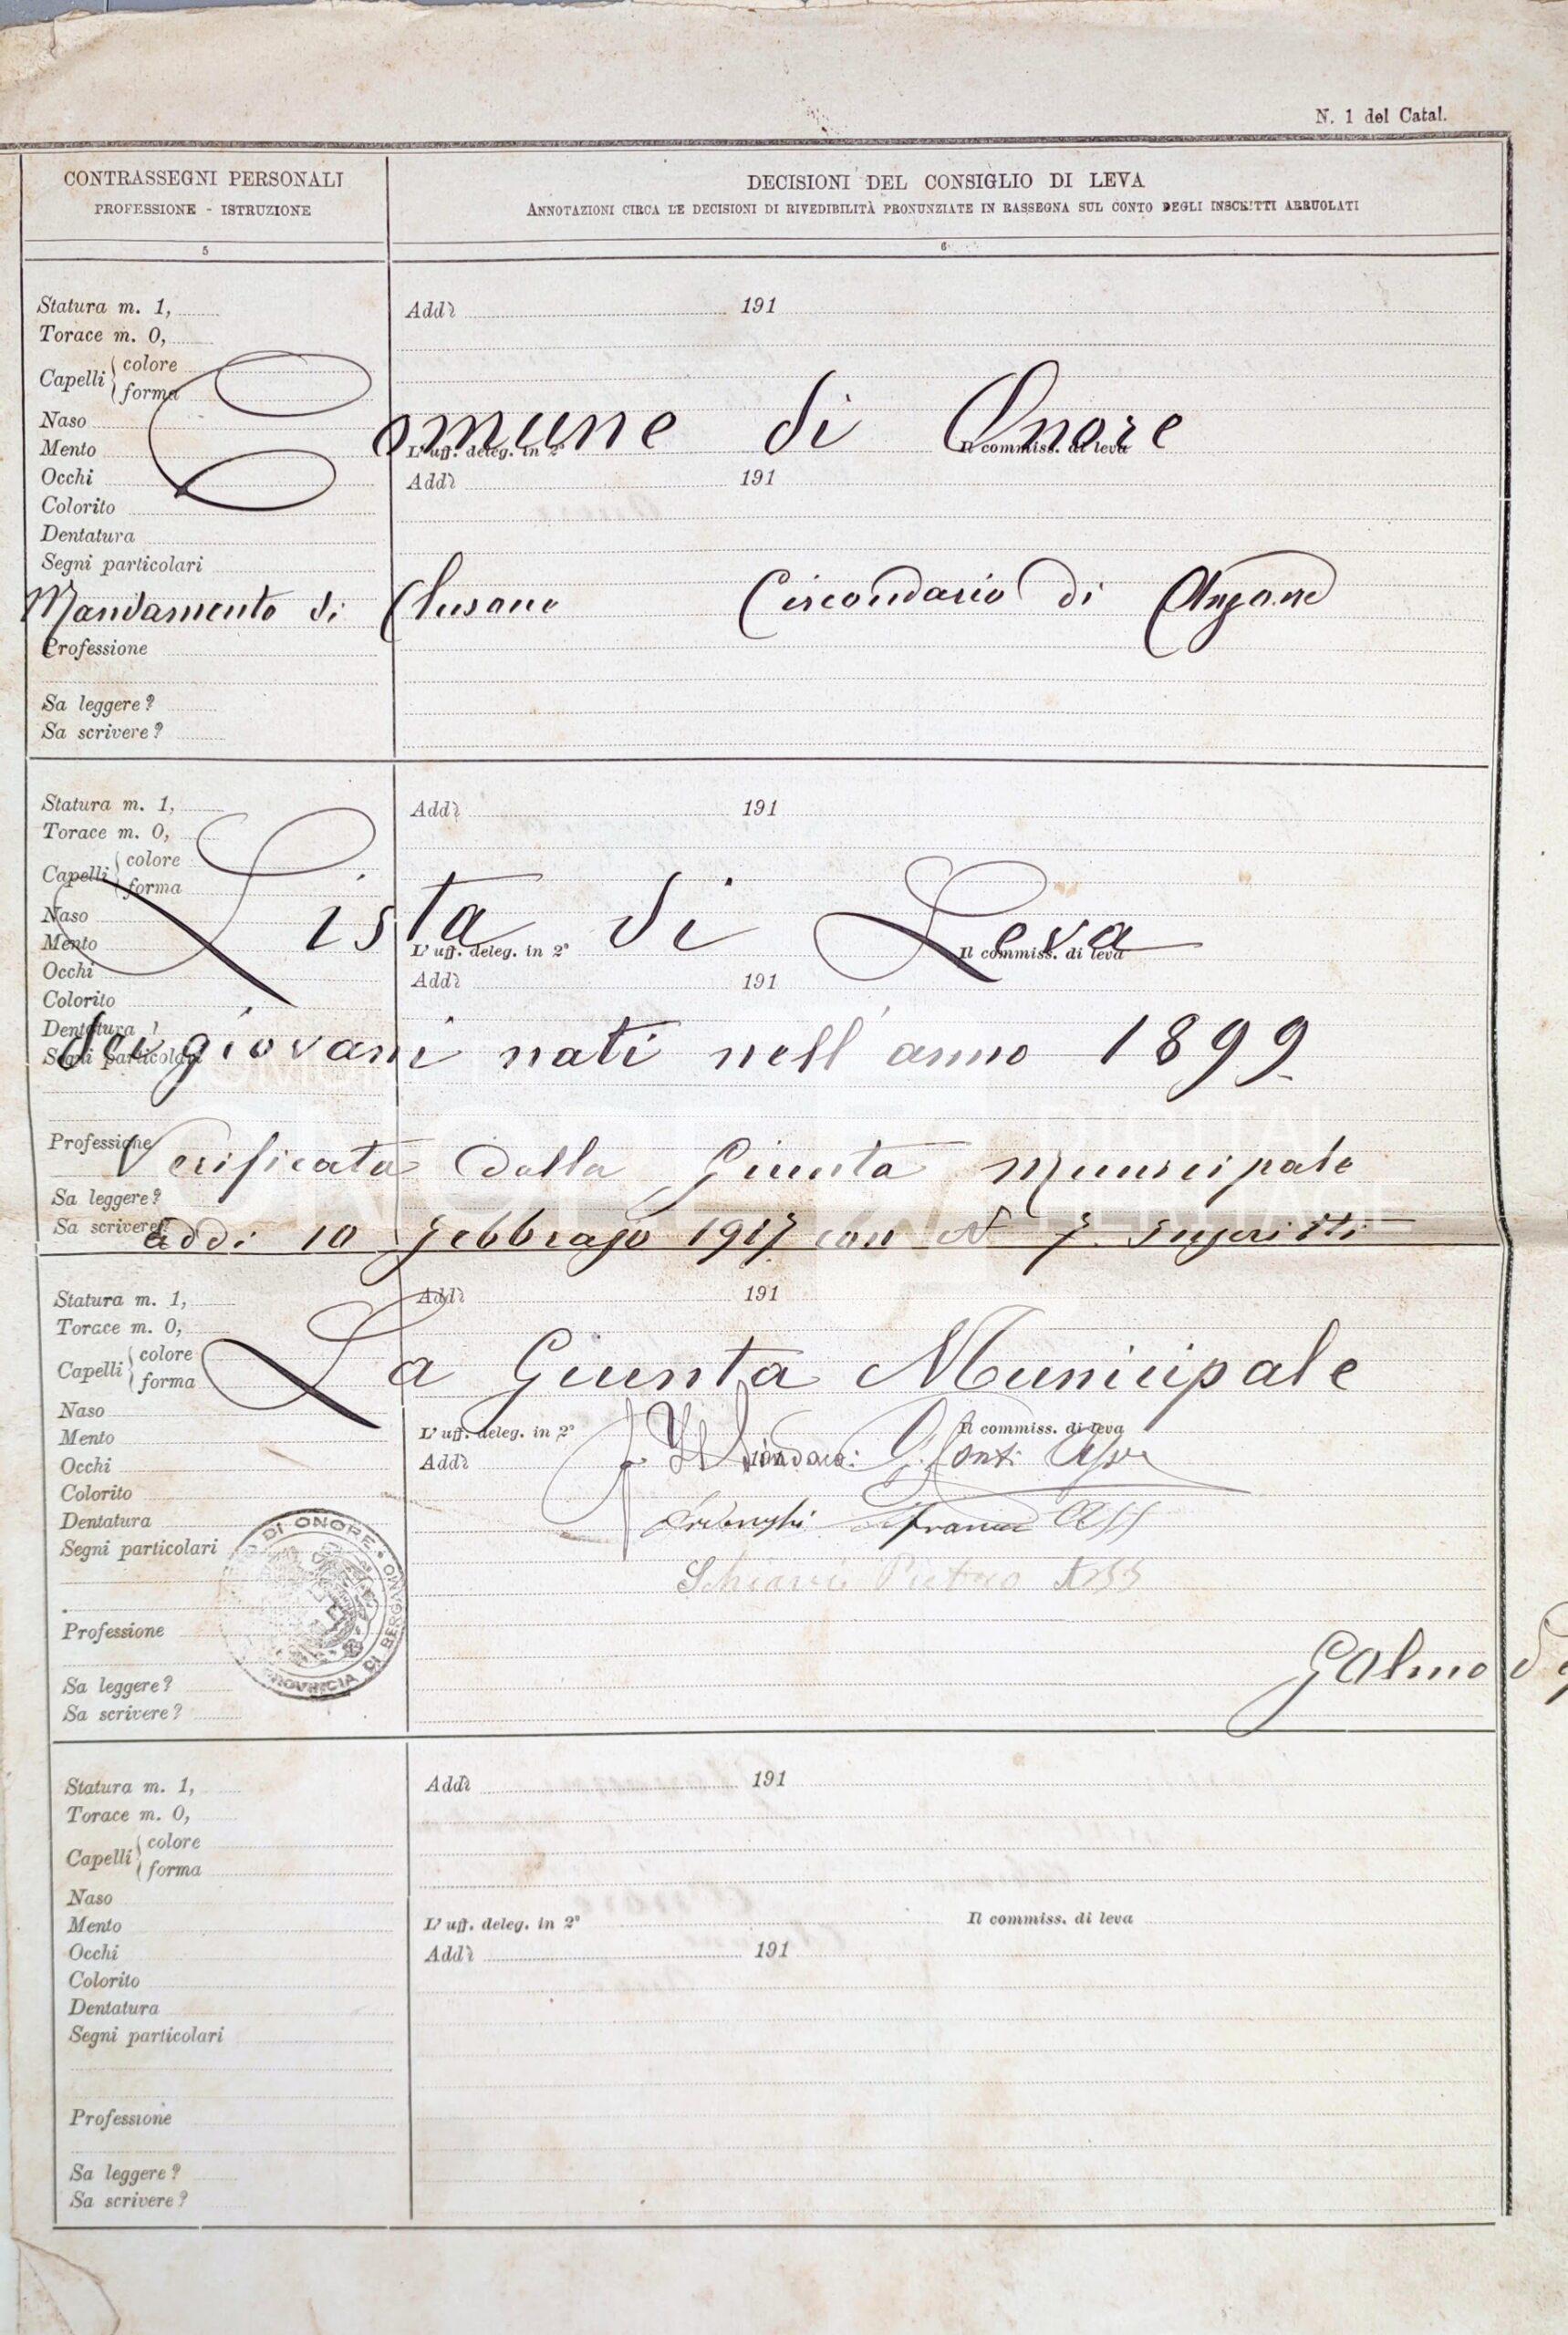 N. 1 del Catal.
CONTRASSEGNI PERSONALI
PROFESSIONE - ISTRUZIONE
5
DECISIONI DEL CONSIGLIO DI LEVA
ANNOTAZIONI CIRCA LE DECISIONI DI RIVEDIBILITÀ PRONUNZIATE IN RASSEGNA SUL CONTO DEGLI INSCRITTI ARRUOLATI
6
Statura m. 1,
Torace m. 0,
Capelli colore
forma
Naso
Mento
Occhi
Colorito
Dentatura
Segni particolari
Professione
Sa leggere?
Sa scrivere?
Addì 191
L'uff. deleg. in 2° Il commiss. di leva
Addì 191
Comune di Onore
Mandamento di Clusone Circondario di Clusone
Statura m. 1,
Torace m. 0,
Capelli colore
forma
Naso
Mento
Occhi
Colorito
Dentatura
Segni particolari
Professione
Sa leggere?
Sa scrivere?
Addì 191
L'uff. deleg. in 2° Il commiss. di leva
Addì 191
Lista di Leva
dei giovani nati nell'anno 1899
Verificata dalla Giunta Municipale
addi 10 Febbrajo 1917 con N 7 inscritti
Statura m. 1,
Torace m. 0,
Capelli colore
forma
Naso
Mento
Occhi
Colorito
Dentatura
Segni particolari
Professione
Sa leggere?
Sa scrivere?
Addì 191
L'uff. deleg. in 2° Il commiss. di leva
Addì 191
La Giunta Municipale
Il Sindaco:
Schiavi Pietro Ass
DI ONORE • PROVINCIA DI BERGAMO
Statura m. 1,
Torace m. 0,
Capelli colore
forma
Naso
Mento
Occhi
Colorito
Dentatura
Segni particolari
Professione
Sa leggere?
Sa scrivere?
Addì 191
L'uff. deleg. in 2° Il commiss. di leva
Addì 191